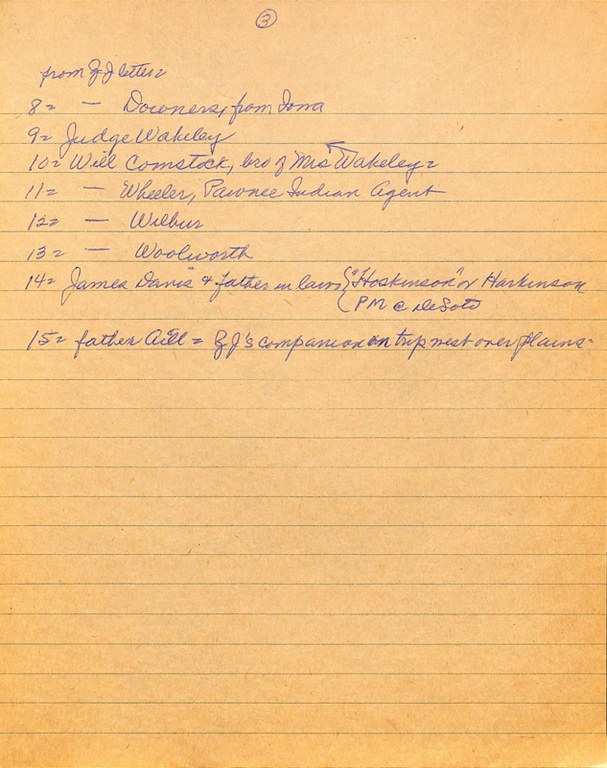 ③
from ZJ letter
8= — Downers, from Iowa
9= Judge Wakeley
10= Will Comstock, bro of Mrs Wakeley=
11= — Wheeler, Pawnee Indian Agent
12= — Wilbur
13= — Woolworth
14= James Davis & father in law { "Hoskinson" or Harkinson
( PM @ DeSoto
15= father = ZJ's companion on trip west over plains-